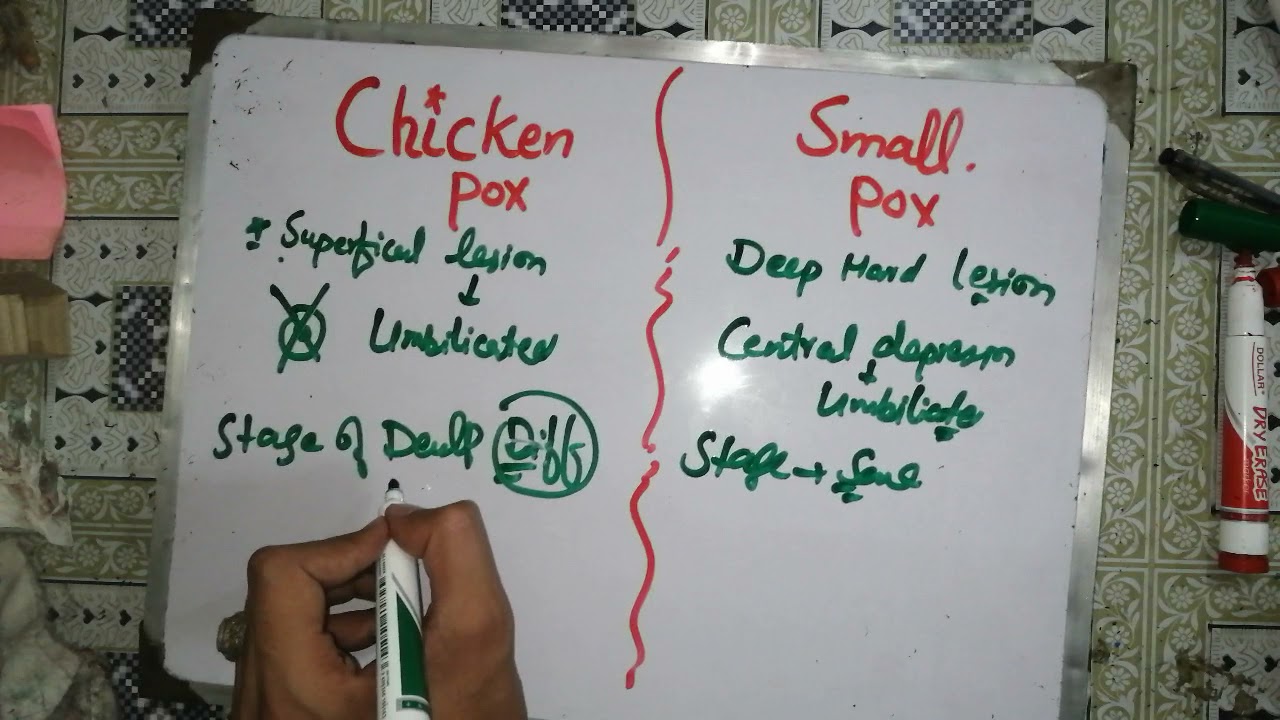 Chicken
pox
* Superfical lesion
↓
Umbilicated
Stage of Devlp Diff
Small.
pox
Deep Hard lesion
Central depressn
↓
Umbilicate
Stage → Same
DOLLAR
DRY ERASE